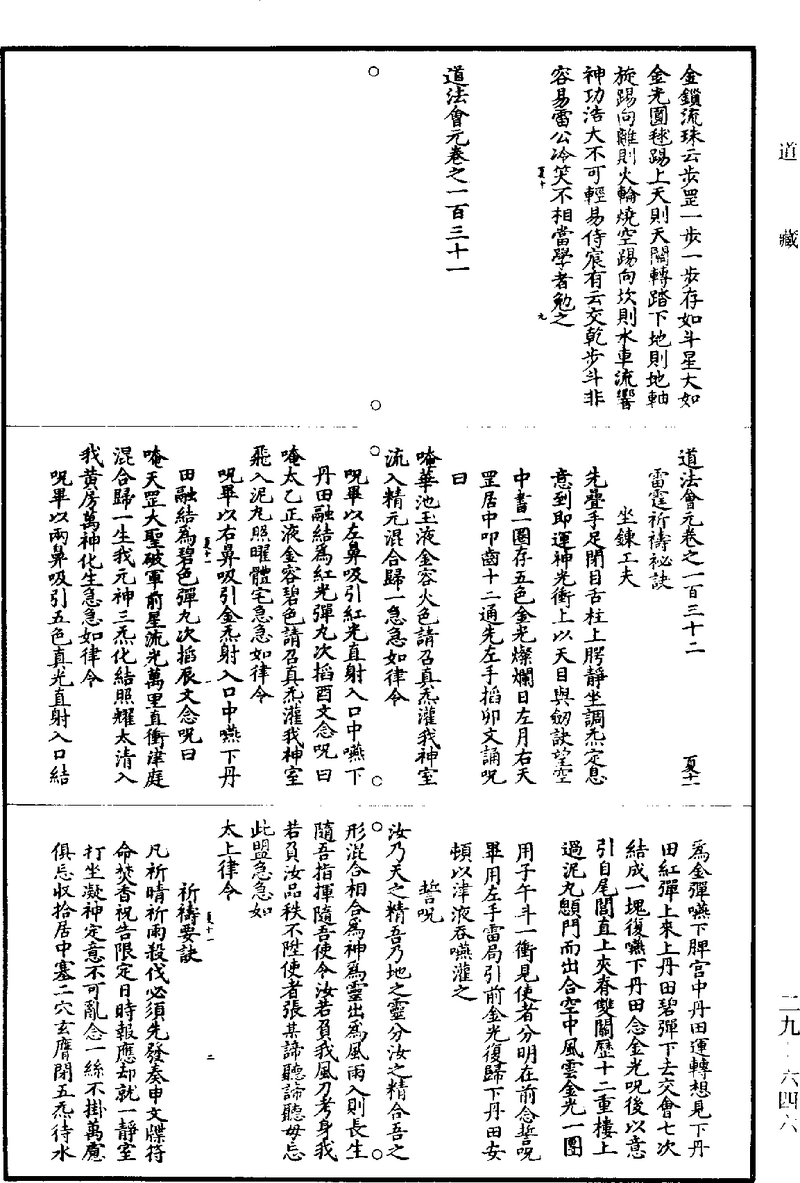 道藏
金鎖流珠云步罡一步一步存如斗星大如
金光圓毬踢上天則天關轉踏下地則地軸
旋踢向離則火輪燒空踢向坎則水車流響
神功浩大不可輕易侍宸有云交乾步斗非
容易雷公冷笑不相當學者勉之
夏十
九
道法會元卷之一百三十一
道法會元卷之一百三十二
夏十一
雷霆祈禱祕訣
坐鍊工夫
先疊手足閉目舌柱上腭靜坐調炁定息
意到即運神光衝上以天目與劒訣望空
中書一圈存五色金光燦爛日左月右天
罡居中叩齒十二通先左手搯卯文誦呪
曰
唵華池玉液金容火色請召真炁灌我神室
流入精元混合歸一急急如律令
呪畢以左鼻吸引紅光直射入口中嚥下
丹田融結爲紅光彈丸次搯酉文念呪曰
唵太乙正液金容碧色請召真炁灌我神室
飛入泥丸照曜體宅急急如律令
呪畢以右鼻吸引金炁射入口中嚥下丹
夏十一
田融結爲碧色彈丸次搯辰文念呪曰
唵天罡大聖破軍前星流光萬里直衝津庭
混合歸一生我元神三炁化結照耀太清入
我黃房萬神化生急急如律令
呪畢以兩鼻吸引五色真光直射入口結
爲金彈嚥下脾宫中丹田運轉想見下丹
田紅彈上來上丹田碧彈下去交會七次
結成一塊復嚥下丹田念金光呪後以意
引自尾閭直上夾脊雙關歷十二重樓上
過泥丸顖門而出合空中風雲金光一圈
用子午斗一衝見使者分明在前念誓呪
畢用左手雷局引前金光復歸下丹田安
頓以津液吞嚥灌之
誓呪
汝乃天之精吾乃地之靈分汝之精合吾之
形混合相合爲神爲靈出爲風雨入則長生
隨吾指揮隨吾使令汝若負我風刀考身我
若負汝品秩不陞使者張某諦聽諦聽毋忘
此盟急急如
太上律令
夏十一
二
祈禱要訣
凡祈晴祈雨殺伐必須先發奏申文牒符
命焚香祝告限定日時報應却就一靜室
打坐凝神定意不可亂念一絲不掛萬慮
俱忘收拾居中塞二穴玄膺閉五炁待水
二九-六四六